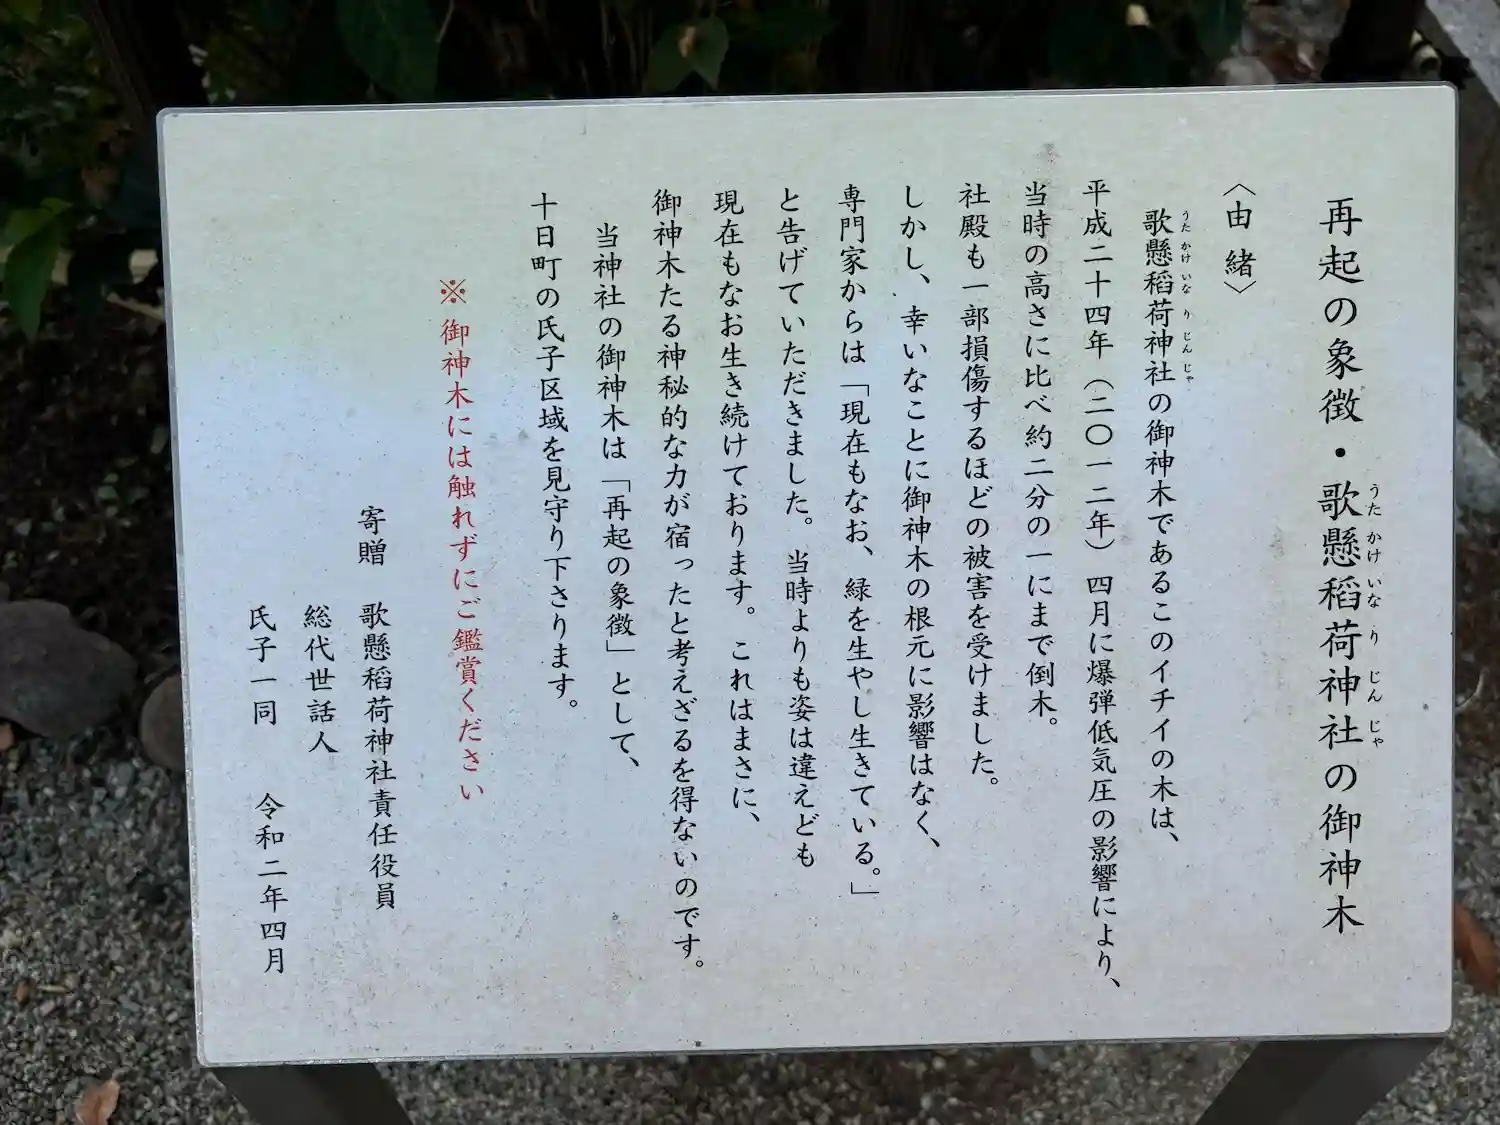 再起の象徴・歌懸稲荷神社の御神木
うたかけいなりじんじゃ
〈由緒〉
歌懸稲荷神社の御神木であるこのイチイの木は、
うたかけいなりじんじゃ
平成二十四年（二〇一二年）四月に爆弾低気圧の影響により、
当時の高さに比べ約二分の一にまで倒木。
社殿も一部損傷するほどの被害を受けました。
しかし、幸いなことに御神木の根元に影響はなく、
専門家からは「現在もなお、緑を生やし生きている。」
と告げていただきました。当時よりも姿は違えども
現在もなお生き続けております。これはまさに、
御神木たる神秘的な力が宿ったと考えざるを得ないのです。
当神社の御神木は「再起の象徴」として、
十日町の氏子区域を見守り下さります。
※御神木には触れずにご鑑賞ください
寄贈 歌懸稲荷神社責任役員
総代世話人
氏子一同 令和二年四月